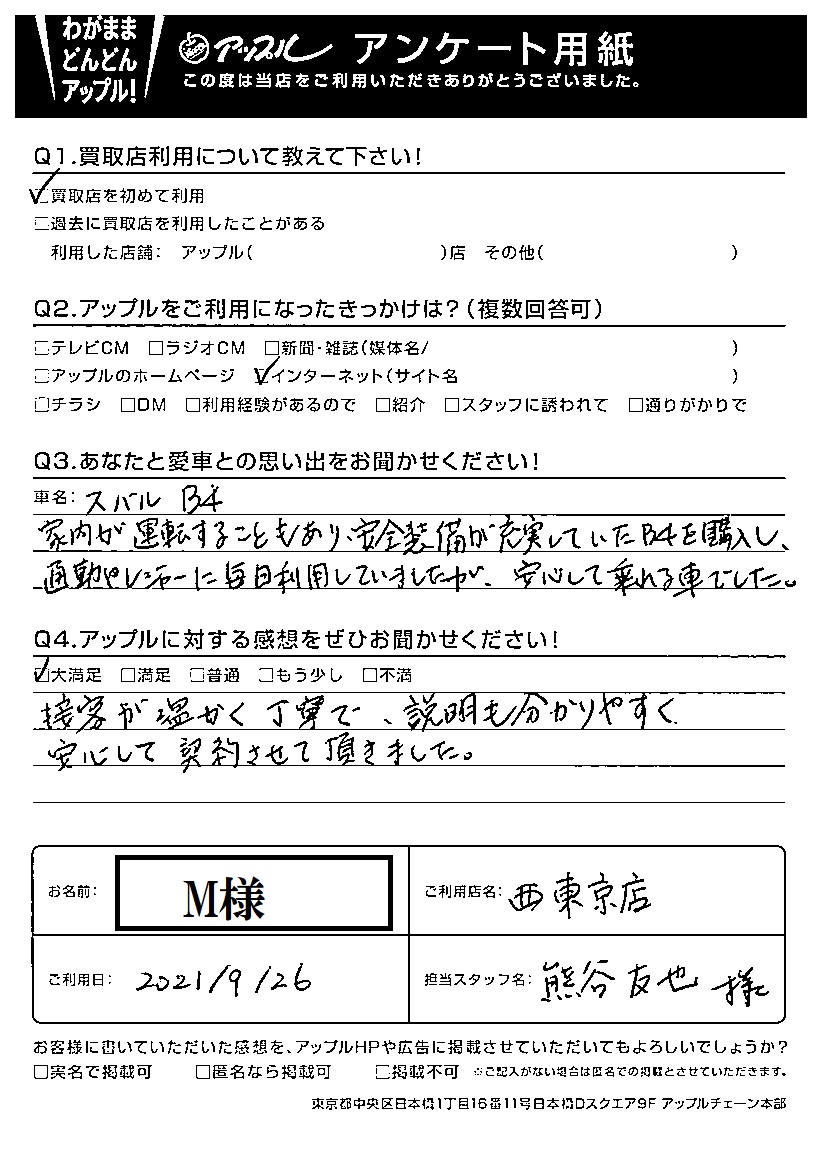 わがまま
どんどん
アップル!
アップル アンケート用紙
この度は当店をご利用いただきありがとうございました。
Q1.買取店利用について教えて下さい!
☑買取店を初めて利用
□過去に買取店を利用したことがある
利用した店舗: アップル( )店 その他( )
Q2.アップルをご利用になったきっかけは?(複数回答可)
□テレビCM □ラジオCM □新聞・雑誌(媒体名/ )
□アップルのホームページ ☑インターネット(サイト名 )
□チラシ □DM □利用経験があるので □紹介 □スタッフに誘われて □通りがかりで
Q3.あなたと愛車との思い出をお聞かせください!
車名: スバル B4
家内が運転することもあり、安全装備が充実していたB4を購入し、
通勤やレジャーに毎日利用していましたが、安心して乗れる車でした。
Q4.アップルに対する感想をぜひお聞かせください!
☑大満足 □満足 □普通 □もう少し □不満
接客が温かく丁寧で、説明も分かりやすく
安心して契約させて頂きました。
お名前: M様
ご利用店名: 西東京店
ご利用日: 2021/9/26
担当スタッフ名: 熊谷友也 様
お客様に書いていただいた感想を、アップルHPや広告に掲載させていただいてもよろしいでしょうか?
□実名で掲載可 □匿名なら掲載可 □掲載不可 ※ご記入がない場合は匿名での掲載とさせていただきます。
東京都中央区日本橋1丁目16番11号日本橋Dスクエア9F アップルチェーン本部